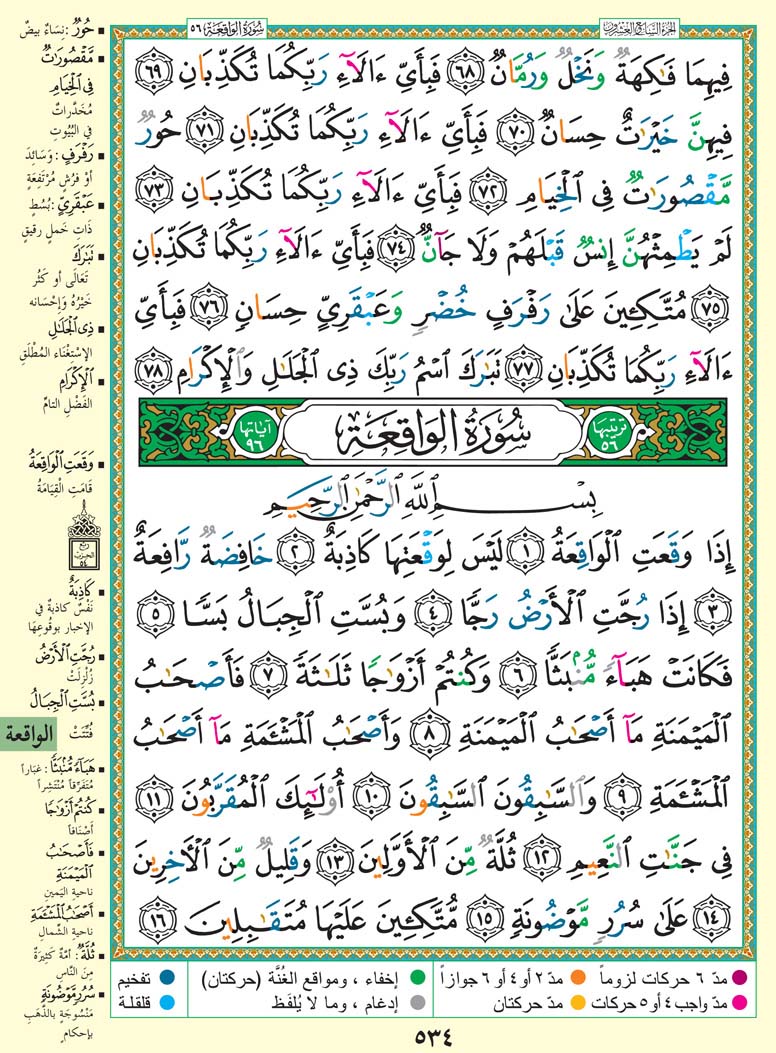 الجزء السابع والعشرون
سورة الواقعة ٥٦
فِيهِمَا فَٰكِهَةٌ وَنَخْلٌ وَرُمَّانٌ ٦٨ فَبِأَيِّ ءَالَآءِ رَبِّكُمَا تُكَذِّبَانِ ٦٩
فِيهِنَّ خَيْرَٰتٌ حِسَانٌ ٧٠ فَبِأَيِّ ءَالَآءِ رَبِّكُمَا تُكَذِّبَانِ ٧١ حُورٌ
مَّقْصُورَٰتٌ فِي ٱلْخِيَامِ ٧٢ فَبِأَيِّ ءَالَآءِ رَبِّكُمَا تُكَذِّبَانِ ٧٣
لَمْ يَطْمِثْهُنَّ إِنسٌ قَبْلَهُمْ وَلَا جَآنٌّ ٧٤ فَبِأَيِّ ءَالَآءِ رَبِّكُمَا تُكَذِّبَانِ
٧٥ مُتَّكِـِٔينَ عَلَىٰ رَفْرَفٍ خُضْرٍ وَعَبْقَرِيٍّ حِسَانٍ ٧٦ فَبِأَيِّ
ءَالَآءِ رَبِّكُمَا تُكَذِّبَانِ ٧٧ تَبَٰرَكَ ٱسْمُ رَبِّكَ ذِي ٱلْجَلَٰلِ وَٱلْإِكْرَامِ ٧٨
ترتيبها ٥٦
سُورَةُ الوَاقِعَةِ
آياتها ٩٦
بِسْمِ ٱللَّهِ ٱلرَّحْمَٰنِ ٱلرَّحِيمِ
إِذَا وَقَعَتِ ٱلْوَاقِعَةُ ١ لَيْسَ لِوَقْعَتِهَا كَاذِبَةٌ ٢ خَافِضَةٌ رَّافِعَةٌ
٣ إِذَا رُجَّتِ ٱلْأَرْضُ رَجًّا ٤ وَبُسَّتِ ٱلْجِبَالُ بَسًّا ٥
فَكَانَتْ هَبَآءً مُّنۢبَثًّا ٦ وَكُنتُمْ أَزْوَٰجًا ثَلَٰثَةً ٧ فَأَصْحَٰبُ
ٱلْمَيْمَنَةِ مَآ أَصْحَٰبُ ٱلْمَيْمَنَةِ ٨ وَأَصْحَٰبُ ٱلْمَشْـَٔمَةِ مَآ أَصْحَٰبُ
ٱلْمَشْـَٔمَةِ ٩ وَٱلسَّٰبِقُونَ ٱلسَّٰبِقُونَ ١٠ أُو۟لَٰٓئِكَ ٱلْمُقَرَّبُونَ ١١
فِي جَنَّٰتِ ٱلنَّعِيمِ ١٢ ثُلَّةٌ مِّنَ ٱلْأَوَّلِينَ ١٣ وَقَلِيلٌ مِّنَ ٱلْأَخِرِينَ
١٤ عَلَىٰ سُرُرٍ مَّوْضُونَةٍ ١٥ مُّتَّكِـِٔينَ عَلَيْهَا مُتَقَٰبِلِينَ ١٦
حُورٌ : نِسَاءٌ بِيضٌ
مَّقْصُورَاتٌ
فِي ٱلْخِيَامِ
مُخَدَّراتٌ
في البُيُوتِ
رَفْرَفٍ : وَسَائِدَ
أوْ فُرُشٍ مُرْتَفِعَةٍ
عَبْقَرِيٍّ : بُسُطٍ
ذَاتِ خَملٍ رقيقٍ
تَبَٰرَكَ
تَعَالَى أو كَثُرَ
خَيْرُهُ وَإِحْسَانه
ذِي ٱلْجَلَٰلِ
الإِسْتِغْنَاء المُطْلَقِ
ٱلْإِكْرَامِ
الفَضْلِ التامِّ
وَقَعَتِ ٱلْوَاقِعَةُ
قَامَتِ الْقِيَامَةُ
ربع
الحزب
٥٤
كَاذِبَةٌ
نَفْسٌ كاذبةٌ في
الإخبار بوقُوعِهَا
رُجَّتِ ٱلْأَرْضُ
زُلْزِلَتْ
بُسَّتِ ٱلْجِبَالُ
فُتِّتَتْ
الواقعة
هَبَآءً مُّنۢبَثًّا : غباراً
مُتَفَرِّقاً مُنْتَشِراً
كُنتُمْ أَزْوَٰجًا
أَصْنَافاً
فَأَصْحَٰبُ
ٱلْمَيْمَنَةِ
ناحية اليَمين
أَصْحَٰبُ ٱلْمَشْـَٔمَةِ
ناحية الشِّمالِ
ثُلَّةٌ : أُمَّةٌ كَثِيرَةٌ
مِنَ النَّاسِ
سُرُرٍ مَّوْضُونَةٍ
مَنْسُوجَةٍ بالذَّهَبِ
بإحكامٍ
مدّ ٦ حركات لزوماً مدّ ٢ أو ٤ أو ٦ جوازاً إخفاء ، ومواقع الغُنَّة (حركتان) تفخيم
مدّ واجب ٤ أو ٥ حركات مدّ حركتان إدغام ، وما لا يُلفَظ قلقلة
٥٣٤